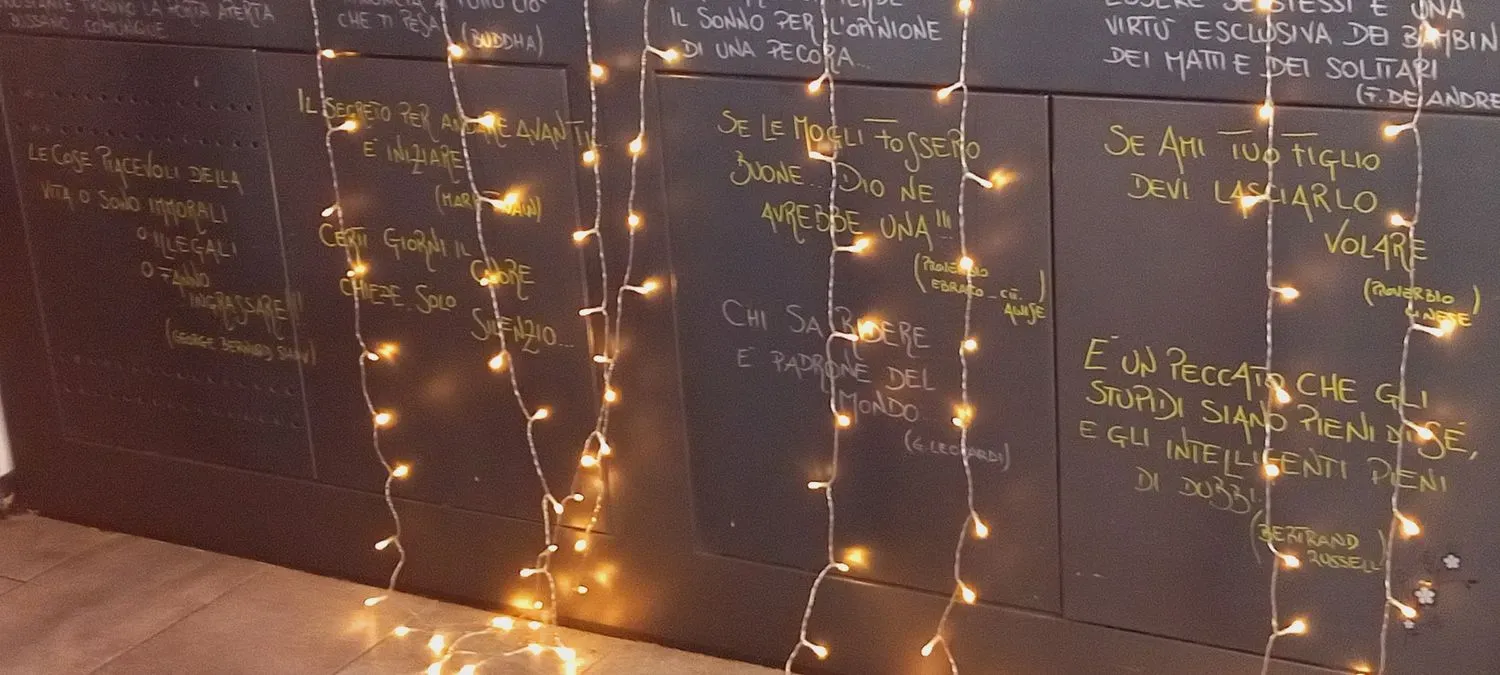 LA PORTA APERTA
BUSSAVO COMUNQUE
CHE TI PESA
(BUDDHA)
IL SONNO PER L'OPINIONE
DI UNA PECORA...
ESSERE SE STESSI È UNA
VIRTÙ ESCLUSIVA DEI BAMBIN
DEI MATTI E DEI SOLITARI
(F. DE ANDRE
LE COSE PIACEVOLI DELLA
VITA O SONO IMMORALI
O ILLEGALI
O FANNO
INGRASSARE!!!
(GEORGE BERNARD SHAW)
IL SEGRETO PER ANDARE AVANTI
E' INIZIARE
(MARK TWAIN)
CERTI GIORNI IL CUORE
CHIEDE SOLO
SILENZIO...
SE LE MOGLI FOSSERO
BUONE... DIO NE
AVREBBE UNA!!!
(PROVERBIO
EBRAICO
CHI SA RIDERE
E' PADRONE DEL
MONDO...
(G. LEOPARDI)
SE AMI TUO FIGLIO
DEVI LASCIARLO
VOLARE
(PROVERBIO
CINESE)
E' UN PECCATO CHE GLI
STUPIDI SIANO PIENI DI SÉ,
E GLI INTELLIGENTI PIENI
DI DUBBI.
(BERTRAND
RUSSELL)